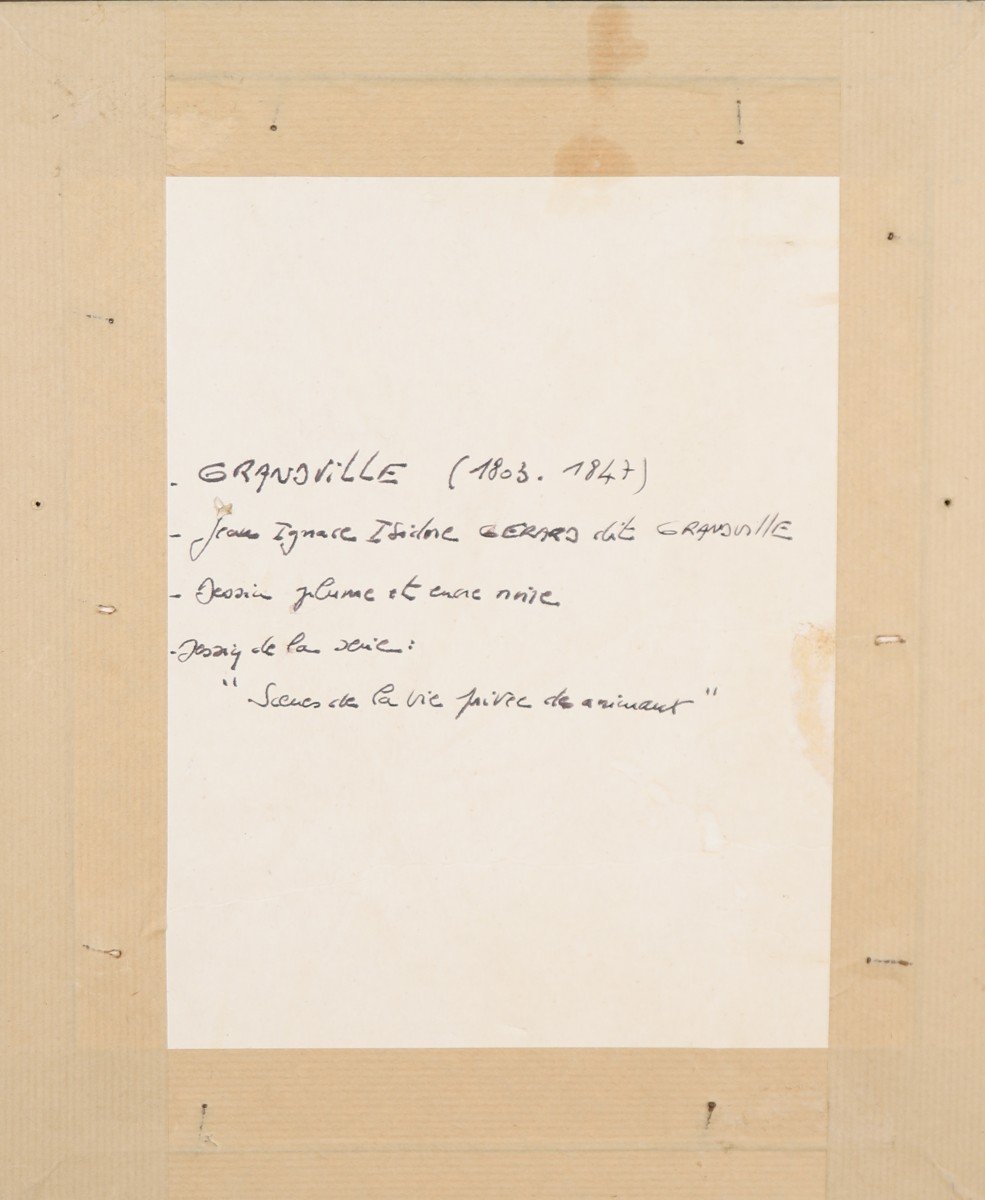 - GRANDVILLE (1803. 1847)
- Jean Ignace Isidore GERARD dit GRANDVILLE
- Dessin plume et encre noire
- Dessin de la serie:
" Scenes de la vie privée de animaux "